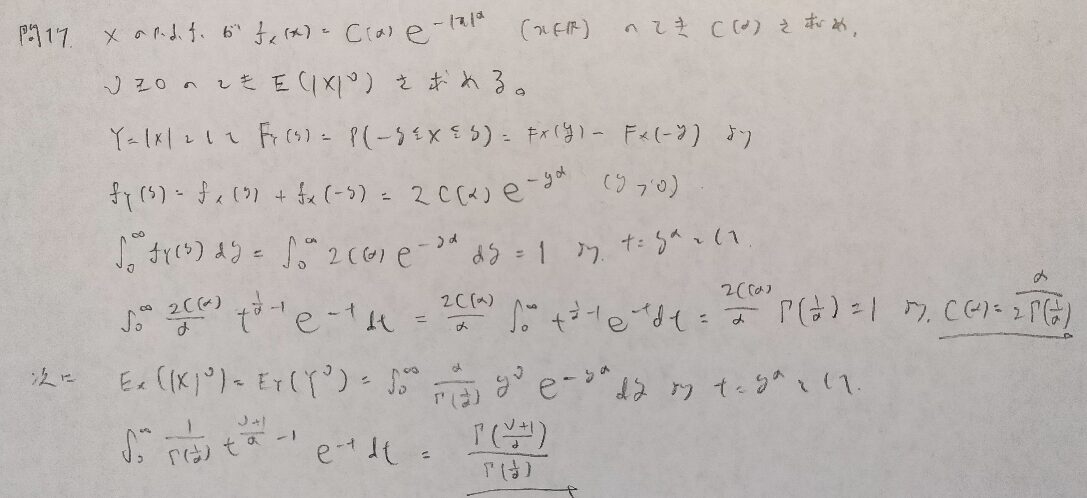 問17. X の p.d.f. が f_X(x) = C(α) e^{-|x|^α} (x∈ℝ) のとき C(α) を求め、
ν≧0 のとき E(|X|^ν) を求める。
Y=|X| として F_Y(y) = P(-y≦X≦y) = F_X(y) - F_X(-y) より
f_Y(y) = f_X(y) + f_X(-y) = 2C(α) e^{-y^α} (y>0).
∫_0^∞ f_Y(y) dy = ∫_0^∞ 2C(α) e^{-y^α} dy = 1 より. t=y^α として.
∫_0^∞ \frac{2C(α)}{α} t^{\frac{1}{α}-1} e^{-t} dt = \frac{2C(α)}{α} ∫_0^∞ t^{\frac{1}{α}-1} e^{-t} dt = \frac{2C(α)}{α} Γ(\frac{1}{α}) = 1 より. C(α) = \frac{α}{2Γ(\frac{1}{α})}
次に E_X(|X|^ν) = E_Y(Y^ν) = ∫_0^∞ \frac{α}{Γ(\frac{1}{α})} y^ν e^{-y^α} dy より t=y^α として.
∫_0^∞ \frac{1}{Γ(\frac{1}{α})} t^{\frac{ν+1}{α}-1} e^{-t} dt = \frac{Γ(\frac{ν+1}{α})}{Γ(\frac{1}{α})}